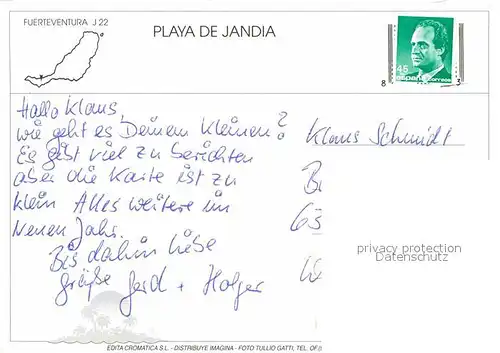 FUERTEVENTURA J 22
PLAYA DE JANDIA
45
8 3
Hallo Klaus,
wie geht es Deinem Kleinen?
Es gibt viel zu berichten
aber die Karte ist zu
klein Alles weitere im
Neuen Jahr.
Bis dahin liebe
Grüße Gerd + Holger
Klaus Schmidt
privacy protection
Datenschutz
EDITA CROMATICA S.L. - DISTRIBUYE IMAGINA - FOTO TULLIO GATTI,